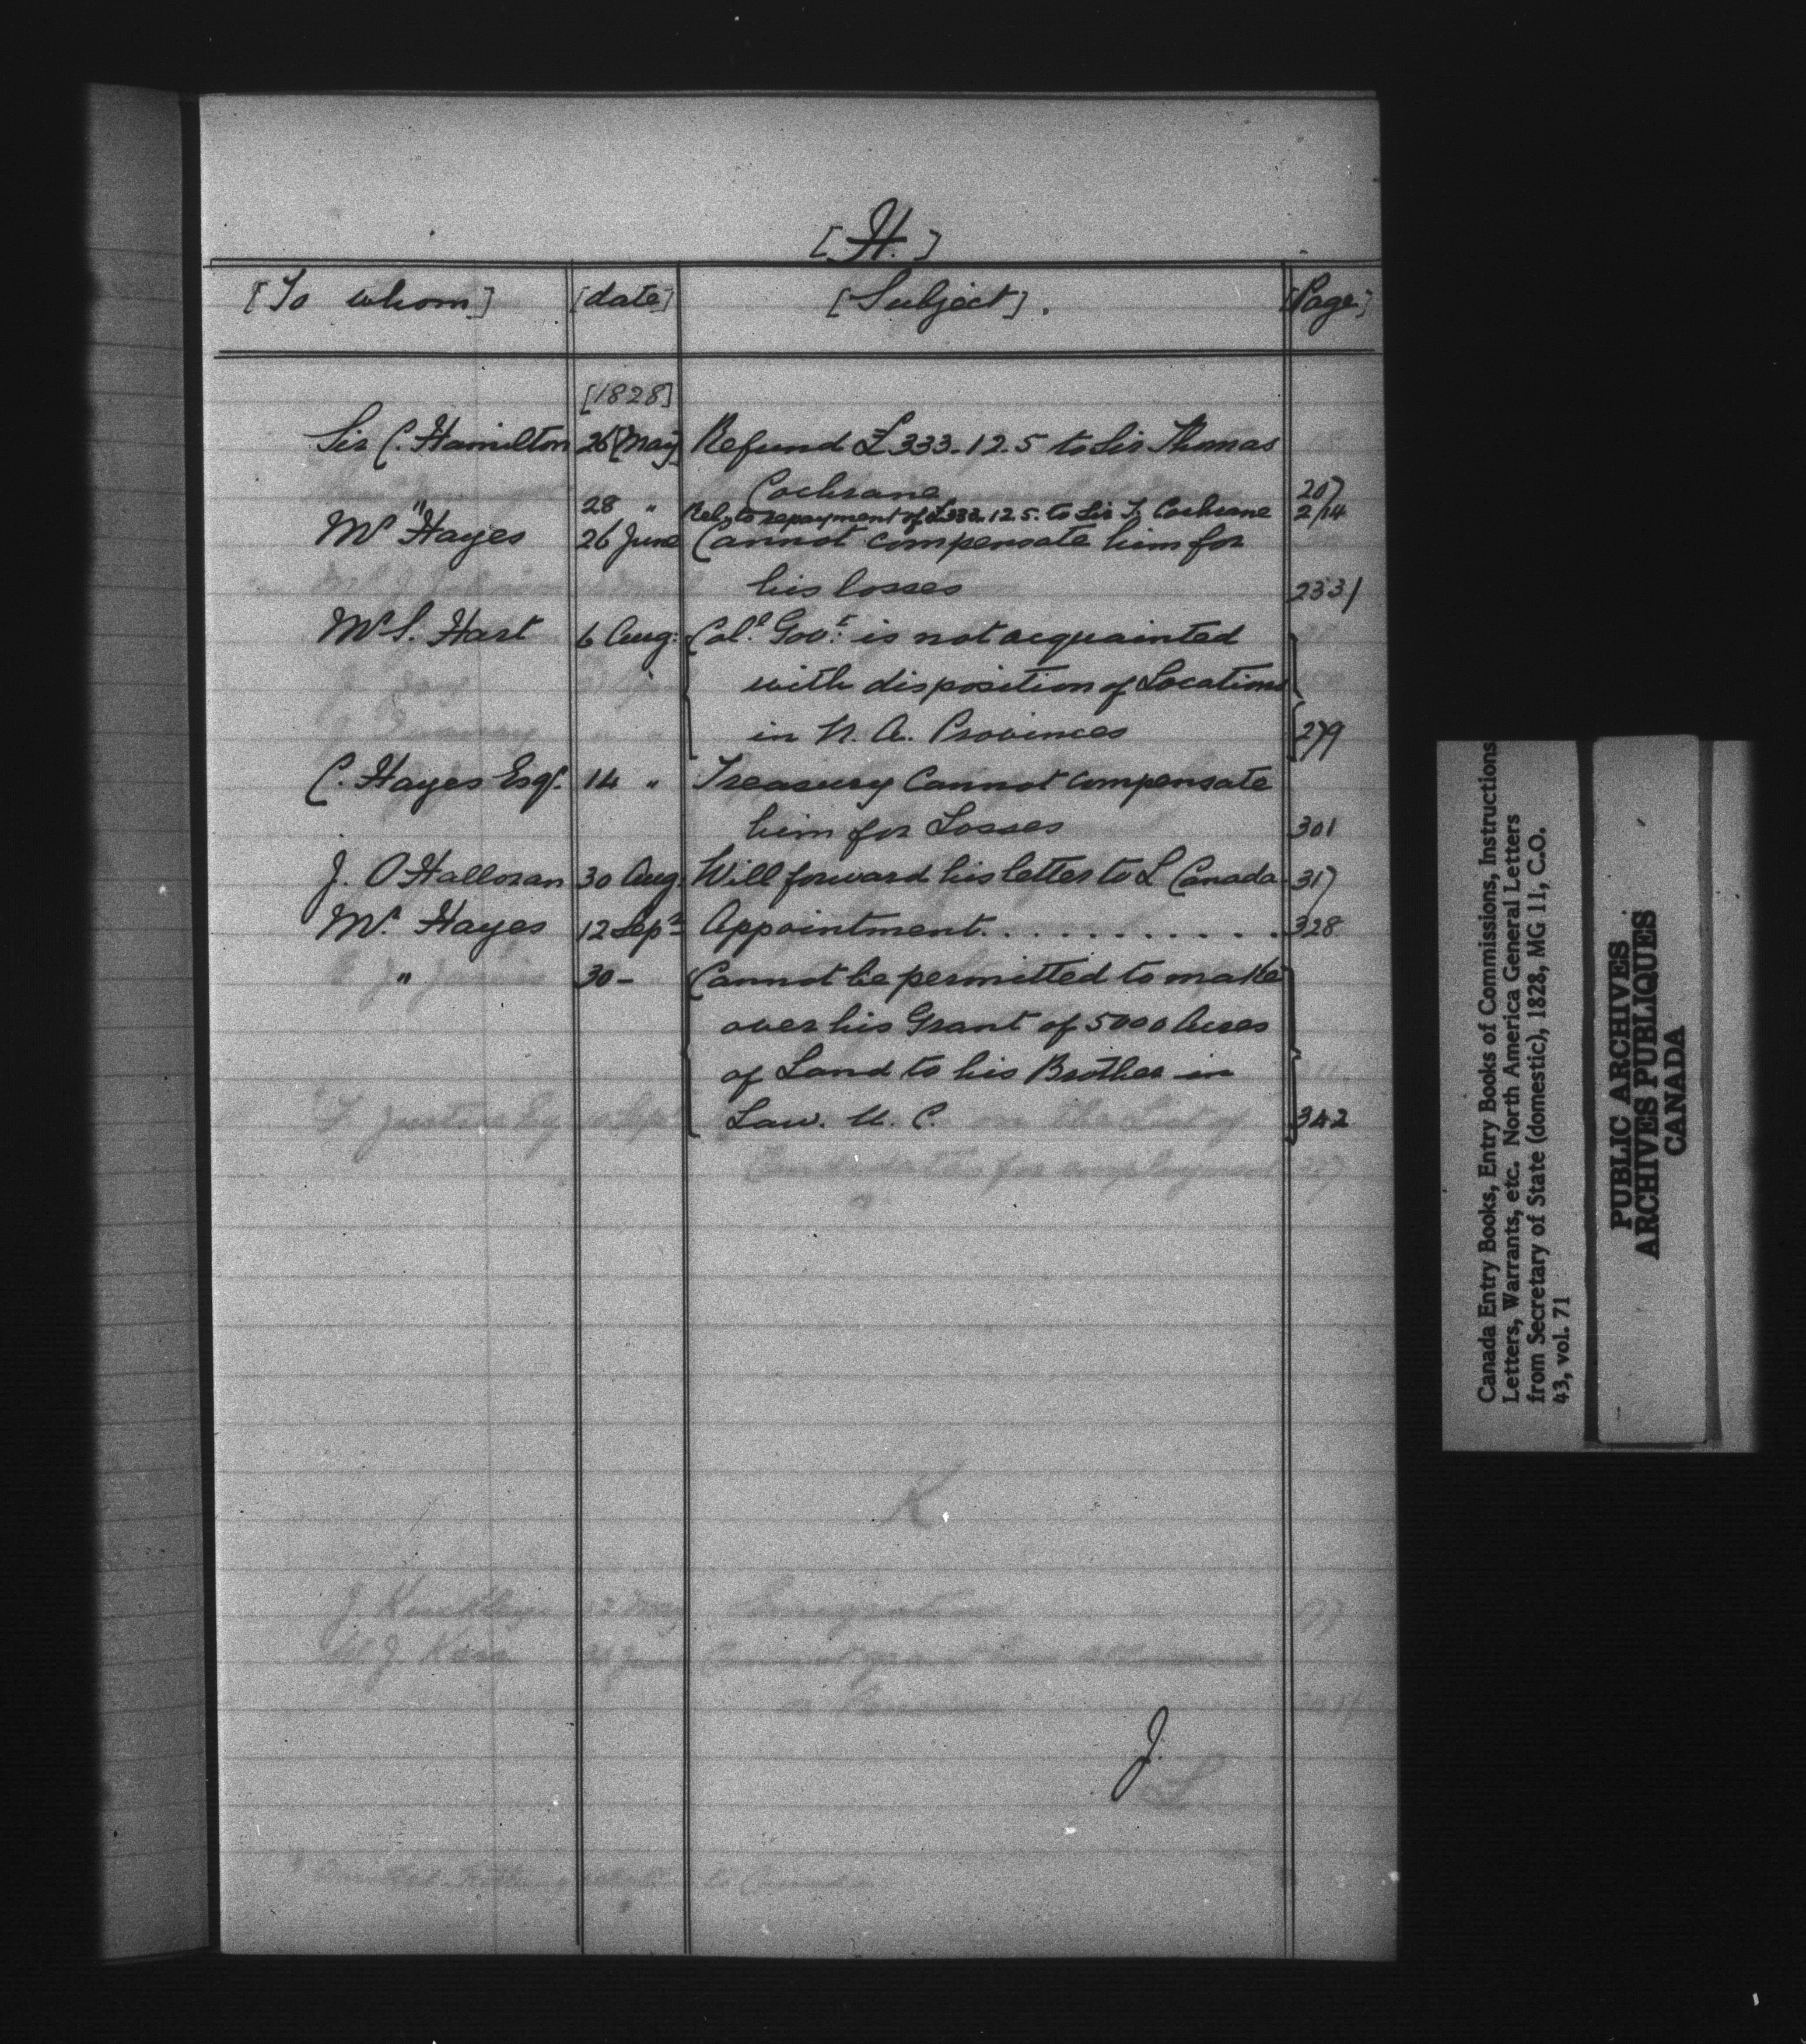 [H.]
[To whom] [date] [Subject]. [Page]
[1828]
Sir C. Hamilton 26 [May] Refund £333.12.5 to Sir Thomas
Cochrane 207
" 28 " Rel. to repayment of £333.12.5. to Sir T. Cochrane 214
Mr Hayes 26 June Cannot compensate him for
his losses 233
Mr S. Hart 6 Aug: Coll Govt: is not acquainted
with disposition of Locations
in N. A. Provinces 279
C. Hayes Esqr. 14 " Treasury Cannot compensate
him for Losses 301
J. O'Halloran 30 Aug. Will forward his letter to L Canada. 317
Mr. Hayes 12 Sepr Appointment. . . . . . . . . . . 328
" 30 - Cannot be permitted to make
over his Grant of 5000 Acres
of Land to his Brother in
Law. U. C. 342
K
J.
L
Canada Entry Books, Entry Books of Commissions, Instructions
Letters, Warrants, etc. North America General Letters
from Secretary of State (domestic), 1828, MG 11, C.O.
43, vol. 71
PUBLIC ARCHIVES
ARCHIVES PUBLIQUES
CANADA